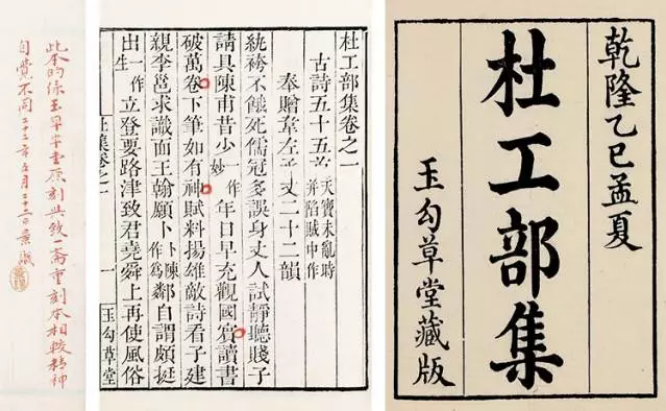 乾隆乙巳孟夏
杜工部集
玉勾草堂藏版
杜工部集卷之一
古詩五十五首 天寶未亂時并陷賊中作
奉贈韋左丞丈二十二韻
紈袴不餓死儒冠多誤身丈人試靜聽賤子
請具陳甫昔少一作妙年日早充觀國賓讀書
破萬卷下筆如有神賦料揚雄敵詩看子建
親李邕求識面王翰願卜卜陳作為鄰自謂頗挺
出一作生立登要路津致君堯舜上再使風俗
杜集卷之一 一 玉勾草堂
此本的係玉勾草堂原刻與致一齋重刻本相較精神
自覺不同二十二年五月二十三日景